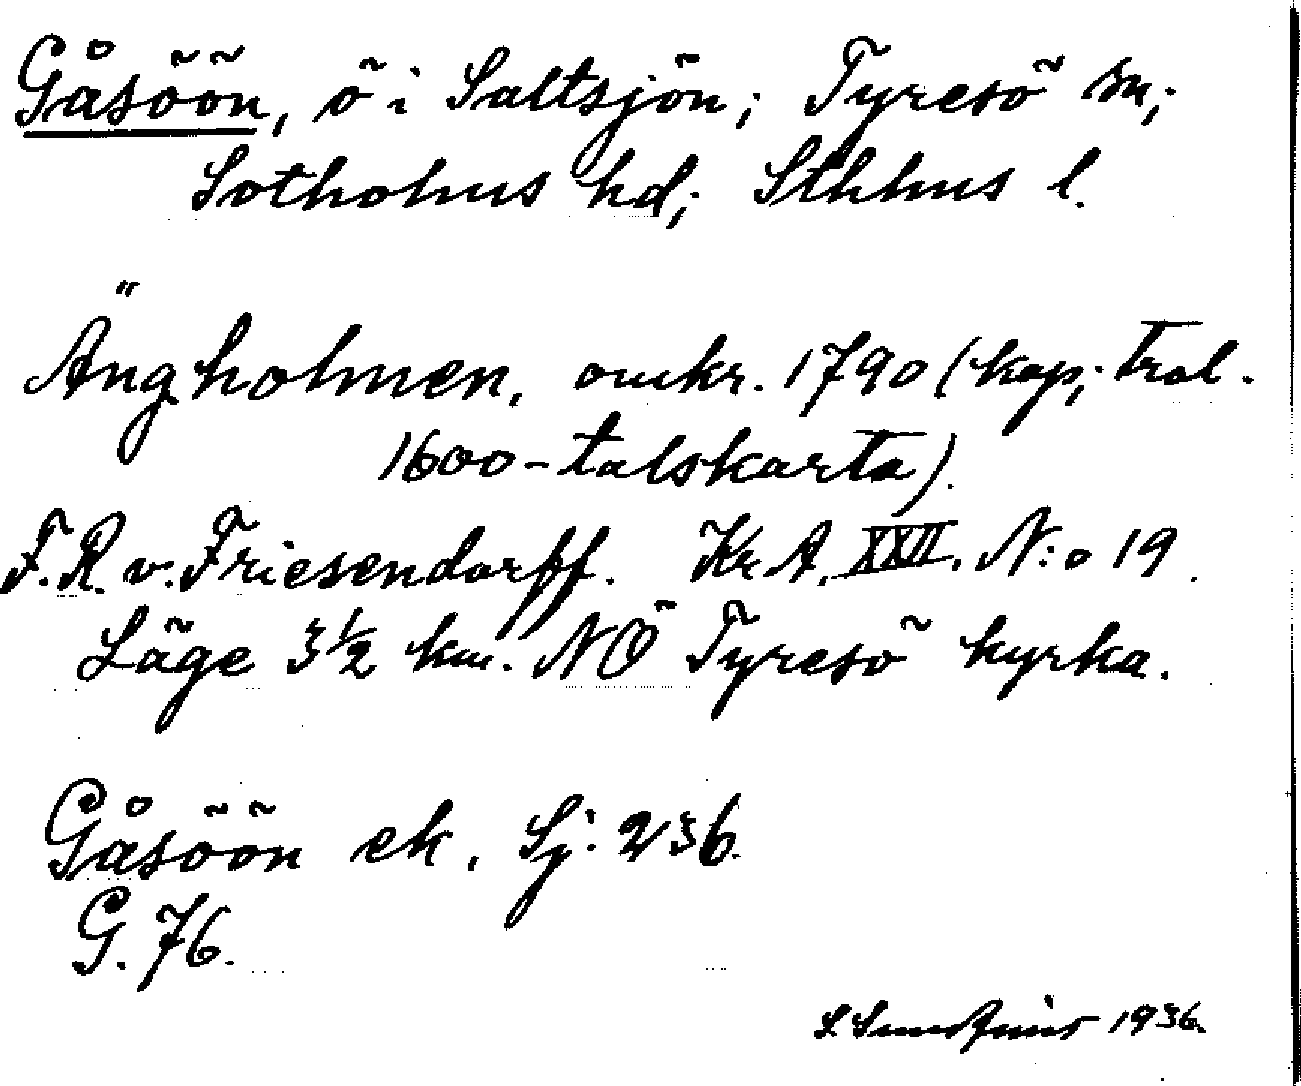 Gåsöön, ö i Saltsjön; Tyresö sn;
Sotholms hd; Sthlms l.
Ängholmen, omkr. 1790 (kop; trol.
1600-talskarta).
F.R. v. Friesendorff. Kr A. XXII. N:o 19.
Läge 3 1/2 km. NÖ Tyresö kyrka.
Gåsöön ek. Sj: 236.
G. 76.
1936.